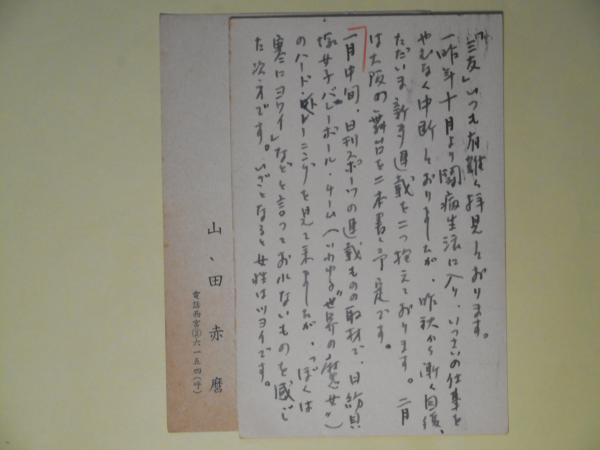 「三友」いつも有難く拝見しております。
一昨年十月より闘病生活に入り、いっさいの仕事を
やむなく中断しておりましたが、昨秋から漸く回復、
ただいま新聞連載を二つ抱えております。二月
は大阪の舞台を二本書く予定です。
一月中旬、日刊スポーツの連載ものの取材で、日紡貝
塚女子バレーボール・チーム(いわゆる"世界の魔女")
のハード・トレーニングを見て来ましたが、「ぼくは
寒にヨワイ」などと言っておれないものを感じ
た次才です。いざとなると女性はツヨイです。
山田赤磨
電話西宮②六一五四(呼)